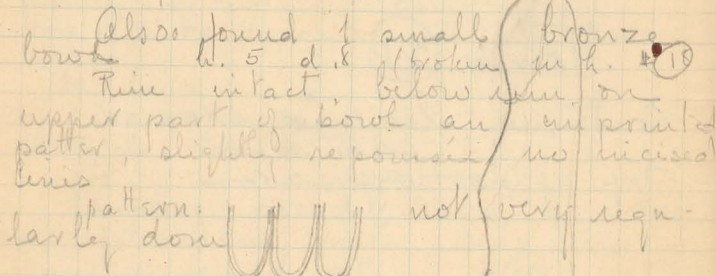 Also found 1 small bronze
bowl h. 5 d. 8 (broken in h. # 18
Rim intact below rim on
upper part of bowl an imprinted
patter, slightly repoussée no incised
lines
pattern. not very regu-
larly done